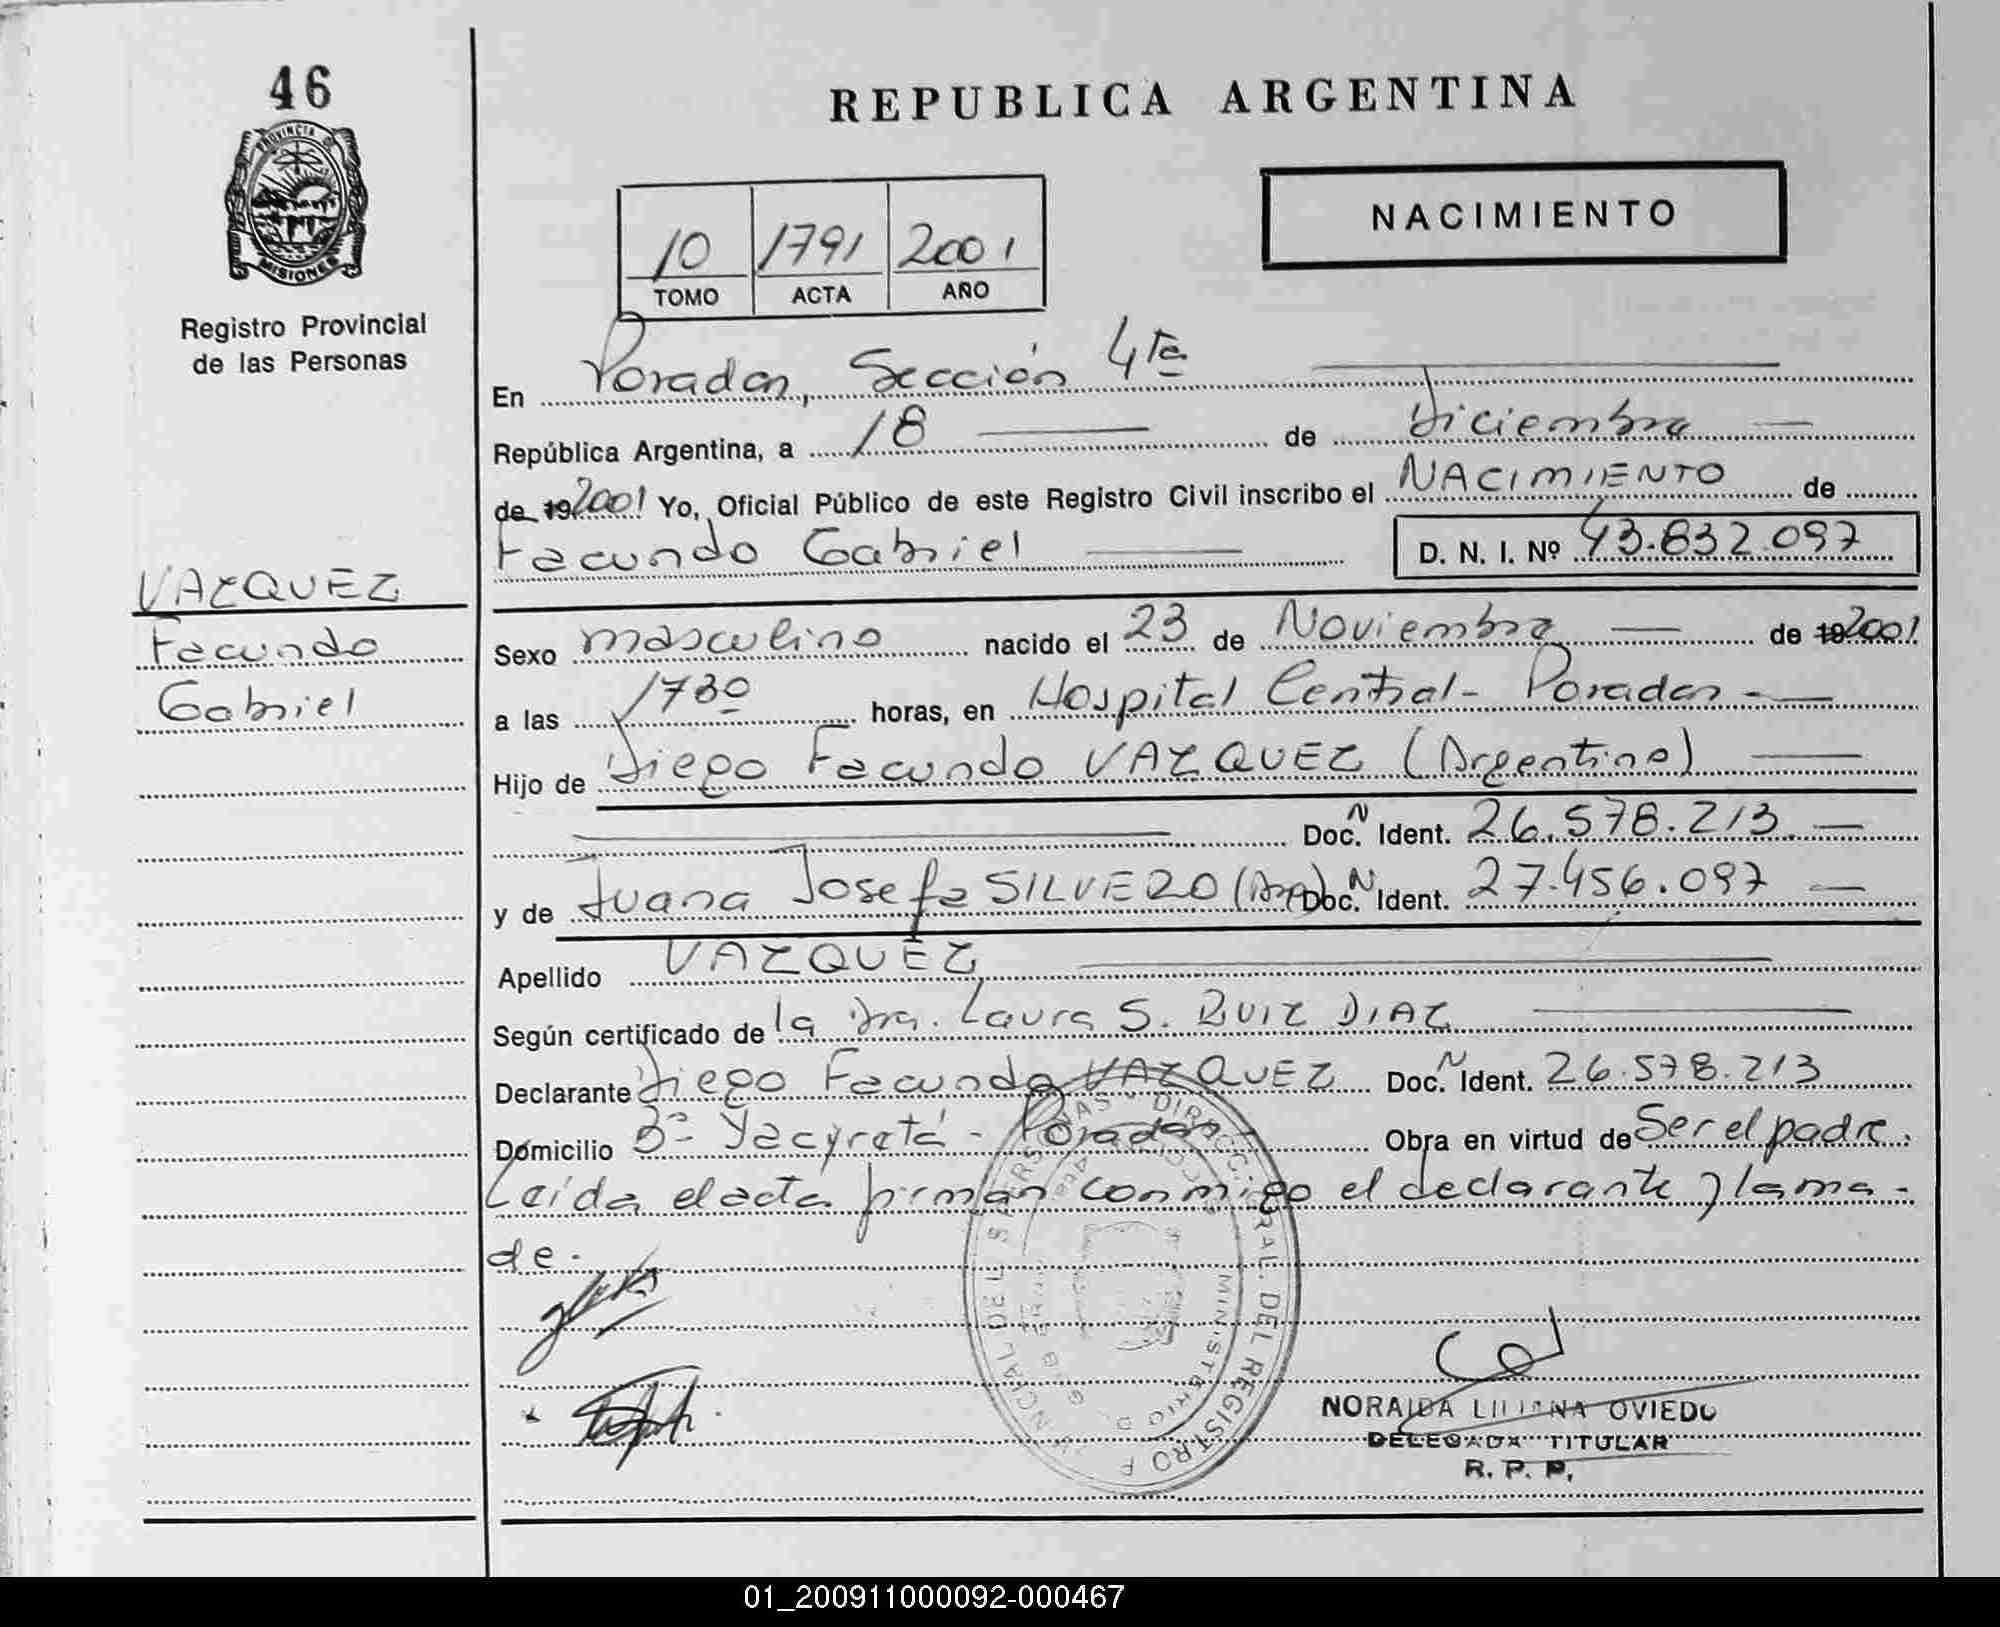 46
PROVINCIA DE
MISIONES
Registro Provincial
de las Personas
REPUBLICA ARGENTINA
NACIMIENTO
10 1791 2001
TOMO ACTA AÑO
En Posadas, Sección 4ta
República Argentina, a 18 de Diciembre
de 19 2001 Yo, Oficial Público de este Registro Civil inscribo el NACIMIENTO de
Facundo Gabriel D. N. I. Nº 43.832.097
VAZQUEZ
Facundo
Gabriel
Sexo masculino nacido el 23 de Noviembre de 19 2001
a las 1730 horas, en Hospital Central - Posadas -
Hijo de Diego Facundo VAZQUEZ (Argentino)
Doc. N Ident. 26.578.213.
y de Juana Josefa SILVERO (Arg) Doc. N Ident. 27.456.097
Apellido VAZQUEZ
Según certificado de la Dra. Laura S. RUIZ DIAZ
Declarante Diego Facundo VAZQUEZ Doc. N Ident. 26.578.213
Domicilio Bº Yacyretá - Posadas - Obra en virtud de Ser el padre.
Leída el acta firman conmigo el declarante y la ma-
dre.
DIRECC. GRAL. DEL REGISTRO P
VINCIAL DE LAS PERSONAS
MINISTERIO D. GOBIERNO
NORAIDA LILIANA OVIEDO
DELEGADA TITULAR
R. P. P.
01_200911000092-000467